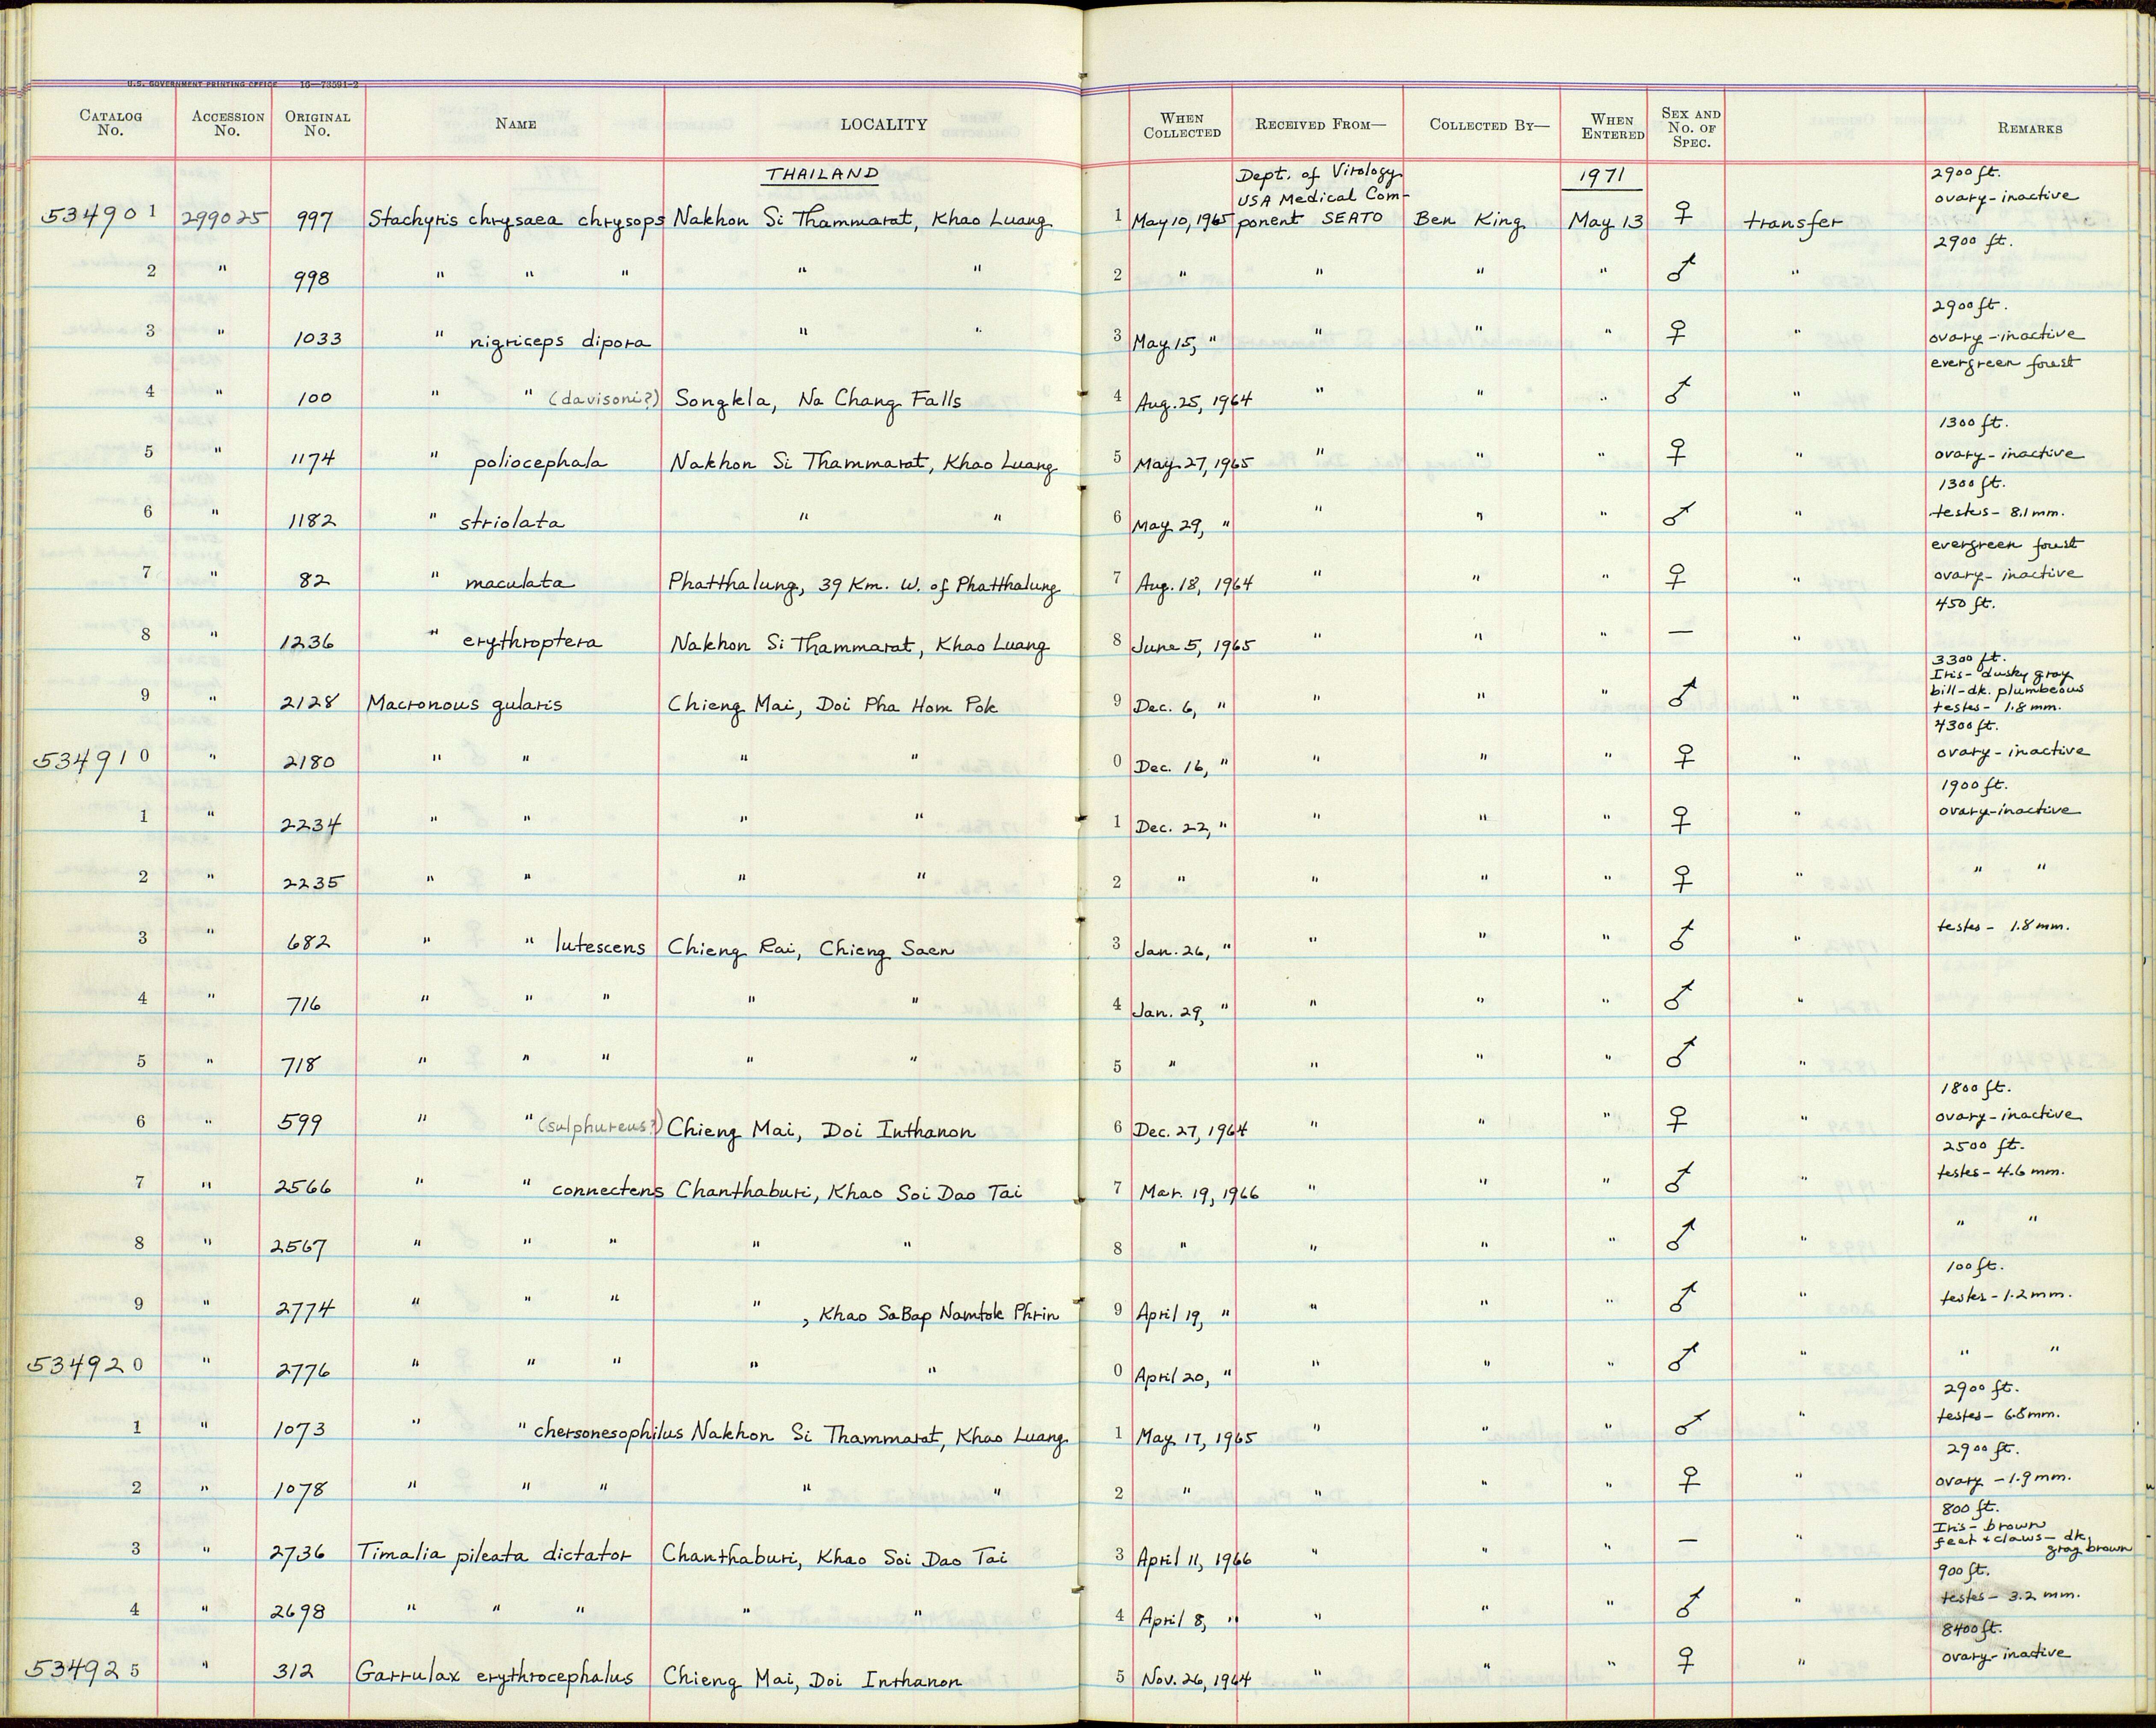 U.S. GOVERNMENT PRINTING OFFICE 16—73591-2
CATALOG No. ACCESSION No. ORIGINAL No. NAME LOCALITY WHEN COLLECTED RECEIVED FROM— COLLECTED BY— WHEN ENTERED SEX AND No. OF SPEC. REMARKS
THAILAND Dept. of Virology 1971 2900 ft.
USA Medical Com- ovary-inactive
534901 299025 997 Stachyris chrysaea chrysops Nakhon Si Thammarat, Khao Luang 1 May 10, 1965 ponent SEATO Ben King May 13 ♀ transfer
2900 ft.
2 " 998 " " " " " 2 " " " " ♂ "
2900 ft.
3 " 1033 " nigriceps dipora " " 3 May 15, " " " " ♀ " ovary-inactive
evergreen forest
4 " 100 " " (davisoni?) Songkla, Na Chang Falls 4 Aug. 25, 1964 " " " ♂ "
1300 ft.
5 " 1174 " poliocephala Nakhon Si Thammarat, Khao Luang 5 May 27, 1965 " " " ♀ " ovary-inactive
1300 ft.
6 " 1182 " striolata " " 6 May 29, " " " " ♂ " testes- 8.1 mm.
evergreen forest
7 " 82 " maculata Phatthalung, 39 Km. W. of Phatthalung 7 Aug. 18, 1964 " " " ♀ " ovary-inactive
450 ft.
8 " 1236 " erythroptera Nakhon Si Thammarat, Khao Luang 8 June 5, 1965 " " " — "
3300 ft.
Iris- dusky gray
bill-dk. plumbeous
9 " 2128 Macronous gularis Chieng Mai, Doi Pha Hom Pok 9 Dec. 6, " " " " ♂ " testes- 1.8 mm.
4300 ft.
534910 " 2180 " " " " 0 Dec. 16, " " " " ♀ " ovary-inactive
1900 ft.
1 " 2234 " " " " 1 Dec. 22, " " " " ♀ " ovary-inactive
2 " 2235 " " " " 2 " " " " ♀ " " "
3 " 682 " " lutescens Chieng Rai, Chieng Saen 3 Jan. 26, " " " " ♂ " testes- 1.8 mm.
4 " 716 " " " " " 4 Jan. 29, " " " " ♂ "
5 " 718 " " " " " 5 " " " " ♂ "
1800 ft.
6 " 599 " " (sulphureus?) Chieng Mai, Doi Inthanon 6 Dec. 27, 1964 " " " ♀ " ovary-inactive
2500 ft.
7 " 2566 " " connectens Chanthaburi, Khao Soi Dao Tai 7 Mar. 19, 1966 " " " ♂ " testes- 4.6 mm.
8 " 2567 " " " " " 8 " " " " ♂ " " "
100 ft.
9 " 2774 " " " " , Khao SaBap Namtok Phrin 9 April 19, " " " " ♂ " testes- 1.2 mm.
534920 " 2776 " " " " " 0 April 20, " " " " ♂ " " "
2900 ft.
1 " 1073 " " chersonesophilus Nakhon Si Thammarat, Khao Luang 1 May 17, 1965 " " " ♂ " testes- 6.8 mm.
2900 ft.
2 " 1078 " " " " " 2 " " " " ♀ " ovary -1.9 mm.
800 ft.
Iris- brown
3 " 2736 Timalia pileata dictator Chanthaburi, Khao Soi Dao Tai 3 April 11, 1966 " " " — " feet & claws- dk. gray brown
900 ft.
4 " 2698 " " " " " 4 April 8, " " " " ♂ " testes- 3.2 mm.
8400 ft.
534925 " 312 Garrulax erythrocephalus Chieng Mai, Doi Inthanon 5 Nov. 26, 1964 " " " ♀ " ovary-inactive